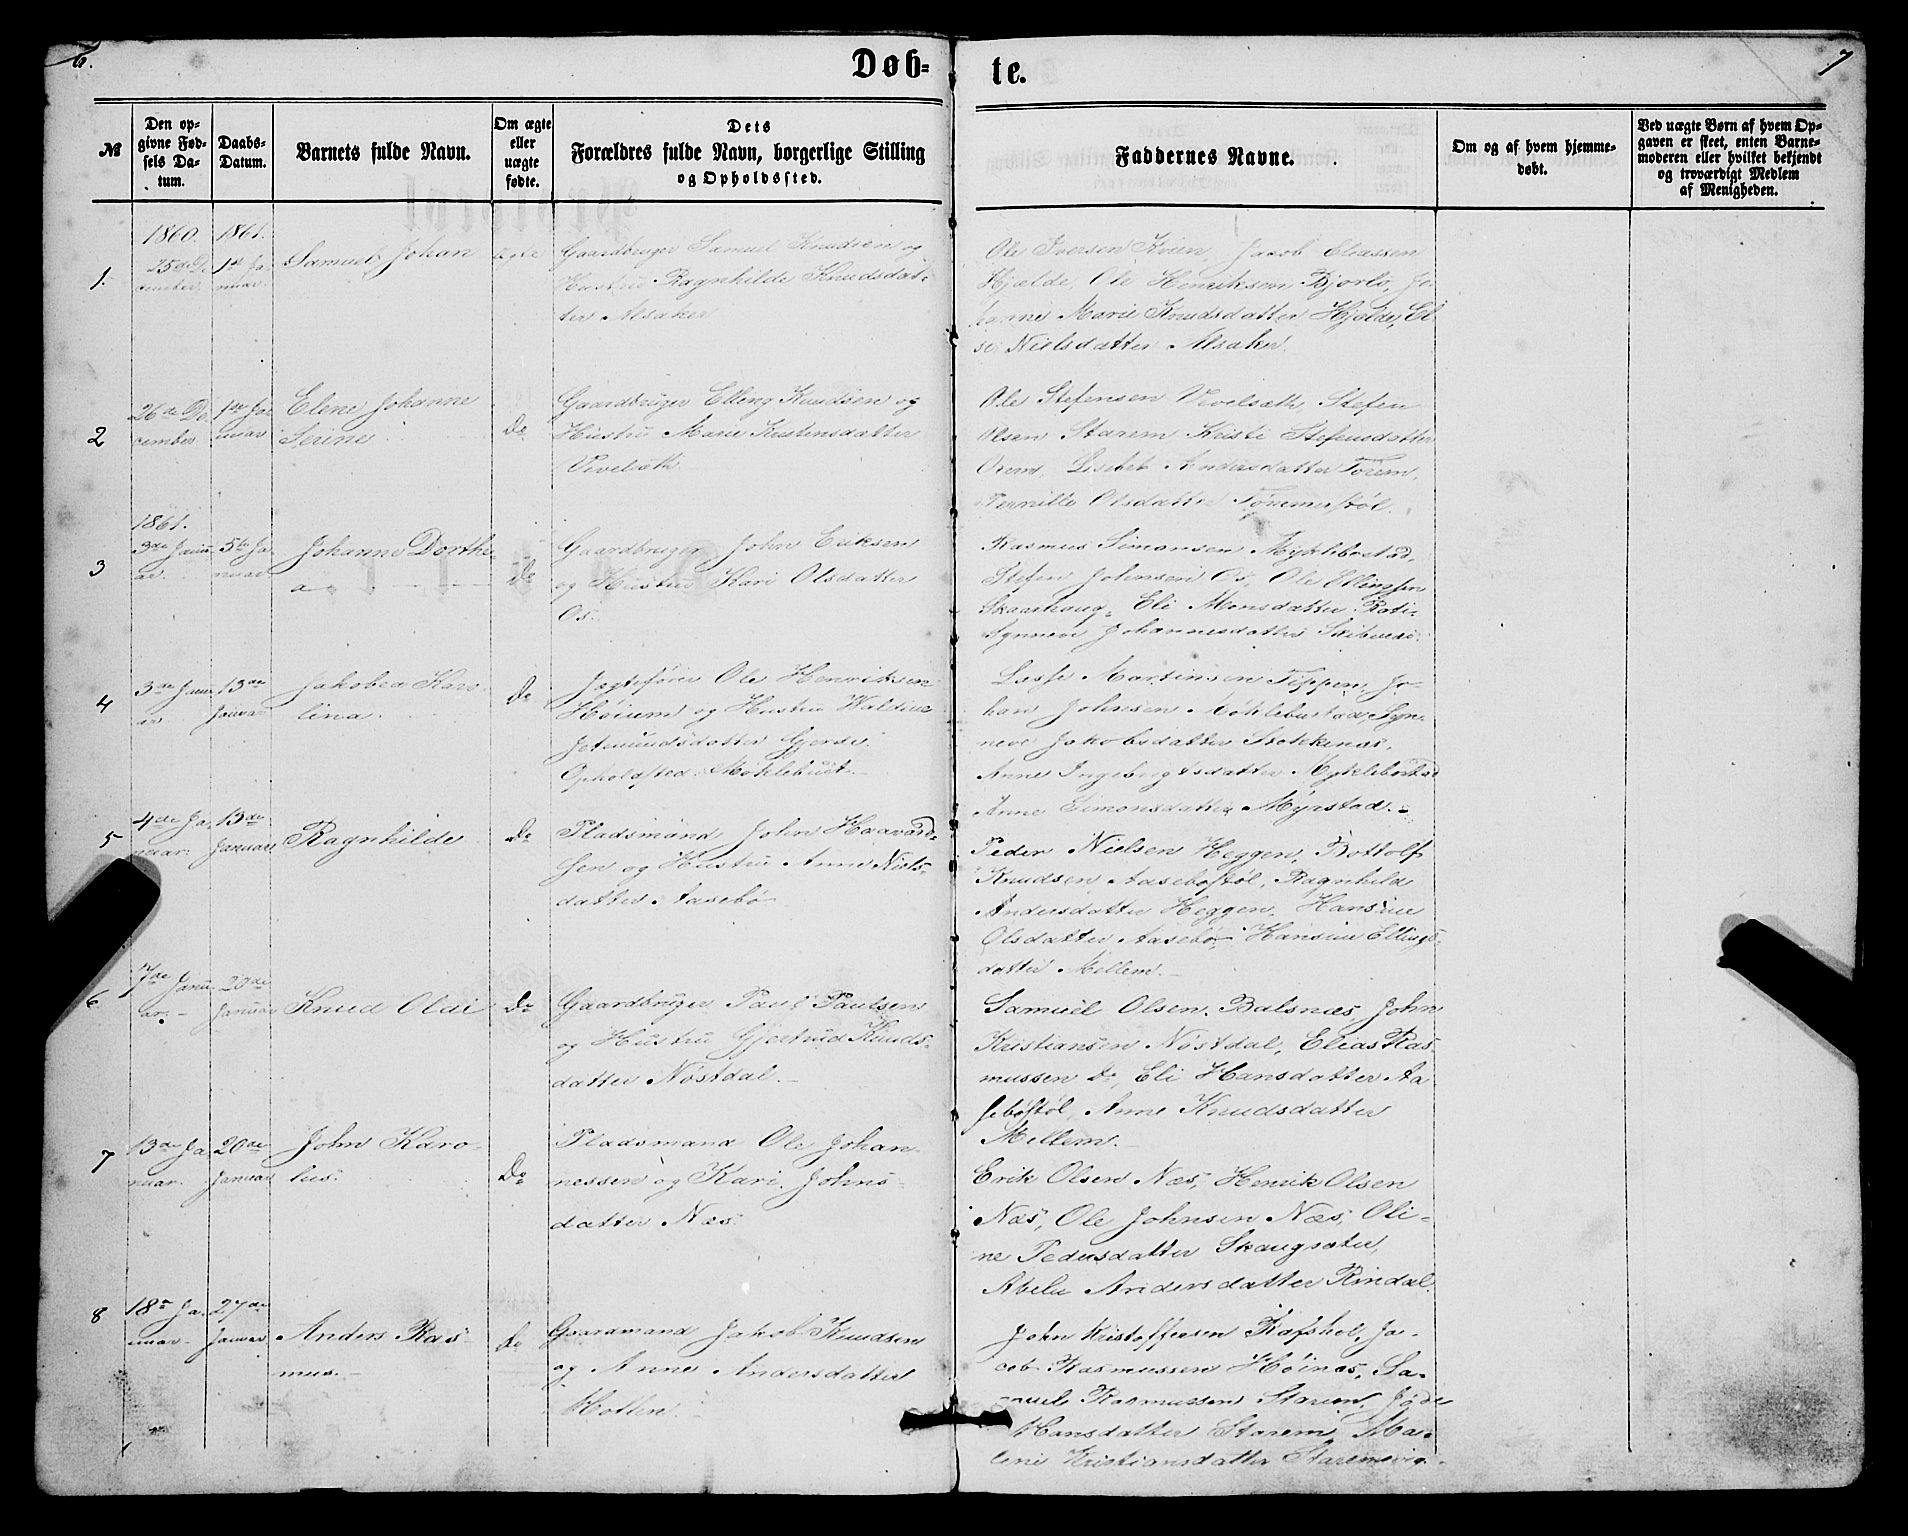 6.
7
Døb- te.
№
Den opgivne Fødsels Datum.
Daabs-Datum.
Barnets fulde Navn.
Om ægte eller uægte fødte.
Dets Forældres fulde Navn, borgerlige Stilling og Opholdssted.
Faddernes Navne.
Om og af hvem hjemmedøbt.
Ved uægte Børn af hvem Opgaven er skeet, enten Barnemoderen eller hvilket bekjendt og troværdigt Medlem af Menigheden.
1860. 1861.
1.
25de De-
cember
1ste Ja-
nuar
Samuel Johan
ægte
Gaardbruger Samuel Knudsen og
Hustru Ragnhilde Knudsdat-
ter Alsaker
Ole Iversen Kvien, Jacob Eliassen
Hjælde, Ole Henriksen Bjorlo, Jo-
hanne Marie Knudsdatter Hjelde, El-
se Nielsdatter Alsaker.
2
26de De-
cember
1ste Ja-
nuar
Elene Johanne
Serine
Do
Gaardbruger Elling Knudsen og
Hustru Marie Kristensdatter
Vevelsøth
Ole Stefensen Vevelsøth Stefen
Olsen Starem Kristi Stefensdatter
Orem, Lisebet Andersdatter Torem,
Pernille Olsdatter
1861.
3
3de Janu-
ar
5te Ja-
nuar
Johanne Dorthe-
a
Do
Gaardbruger John Eriksen
og Hustru Kari Olsdatter
Os.
Rasmus Simonsen Myklebostad,
Stefen Johnsen Os, Ole Ellingsen
Skaarhaug, Eli Monsdatter Roti-
Synneve Johannesdatter
4
3de Janu-
ar
13de
Januar
Jakobea Karo-
lina.
Do
Jagtefører Ole Henriksen
Høiem og Hustru Waldine
Jetmundsdatter Gjerde.
Opholdsted: Møklebust.
Lasse Martinsen Tippen, Jo-
han Johnsen Møklebustad, Syn-
neve Jakobsdatter Stokkenæs,
Anne Ingebrigtsdatter Myklebostad
Anne Simonsdatter Myrstad.
5
4de Ja-
nuar.
13de
Januar
Ragnhilde
Do
Pladsmand John Haavard-
sen og Hustru Anne Niels-
datter Aasebø
Peder Nielsen Heggen, Bottolf
Knudsen Aasebøstøl, Ragnhild
Andersdatter Heggen, Hansine
Olsdatter Aasebø, Hansine Ellings-
datter Mellem.
6
7de Janu-
ar.
20de
Januar
Knud Olai
Do
Gaardbruger Paul Paulsen
og Hustru Gjertrud Knuds-
datter Nøstdal.
Samuel Olsen Balsnæs, John
Kristiansen Nøstdal, Elias Ras-
mussen Do, Eli Hansdatter Aa-
sebøstøl, Anne Knudsdatter
Mellem.
7
13de Ja-
nuar.
20de
Januar
John Karo-
lus.
Do
Pladsmand Ole Johan-
nessen og Kari Johns-
datter Næs.
Erik Olsen Næs, Henrik Olsen
Næs, Ole Johnsen Næs, Oli-
ne Pedersdatter Skaugsæter,
Abelu Andersdatter Rindal.
8
18de Ja-
nuar
27de
Januar
Anders Ras-
mus.
Do
Gaardmand Jakob Knudsen
og Anne Andersdatter
Hollen.
John Kristoffersen Ja-
cob Rasmussen Høinæs, Sa-
muel Rasmussen Starem,
Hansdatter Starem, Ma-
lene Kristiansdatter Staremsvig.